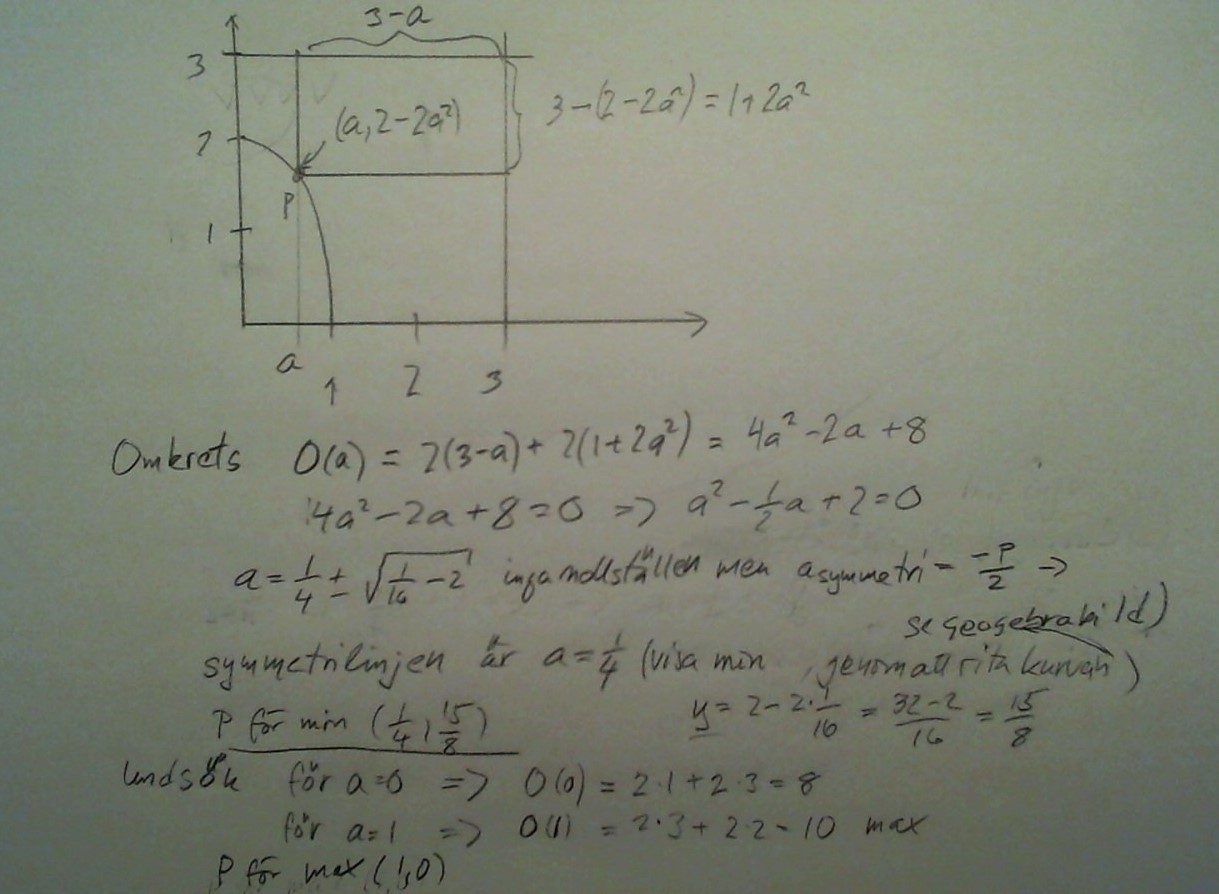 3-a
3
3-(2-2a²) = 1+2a²
(a, 2-2a²)
2
P
1
a
1 2 3
Omkrets O(a) = 2(3-a) + 2(1+2a²) = 4a² - 2a + 8
4a² - 2a + 8 = 0 => a² - 1/2 a + 2 = 0
a = 1/4 ± √(1/16 - 2) inga nollställen men a symmetri = -p/2 →
se geogebrabild)
symmetrilinjen är a = 1/4 (visa min genom att rita kurvan)
P för min (1/4, 15/8) y = 2 - 2·1/16 = 32-2/16 = 15/8
Undsök för a=0 => O(0) = 2·1 + 2·3 = 8
för a=1 => O(1) = 2·3 + 2·2 = 10 max
P för max (1,0)